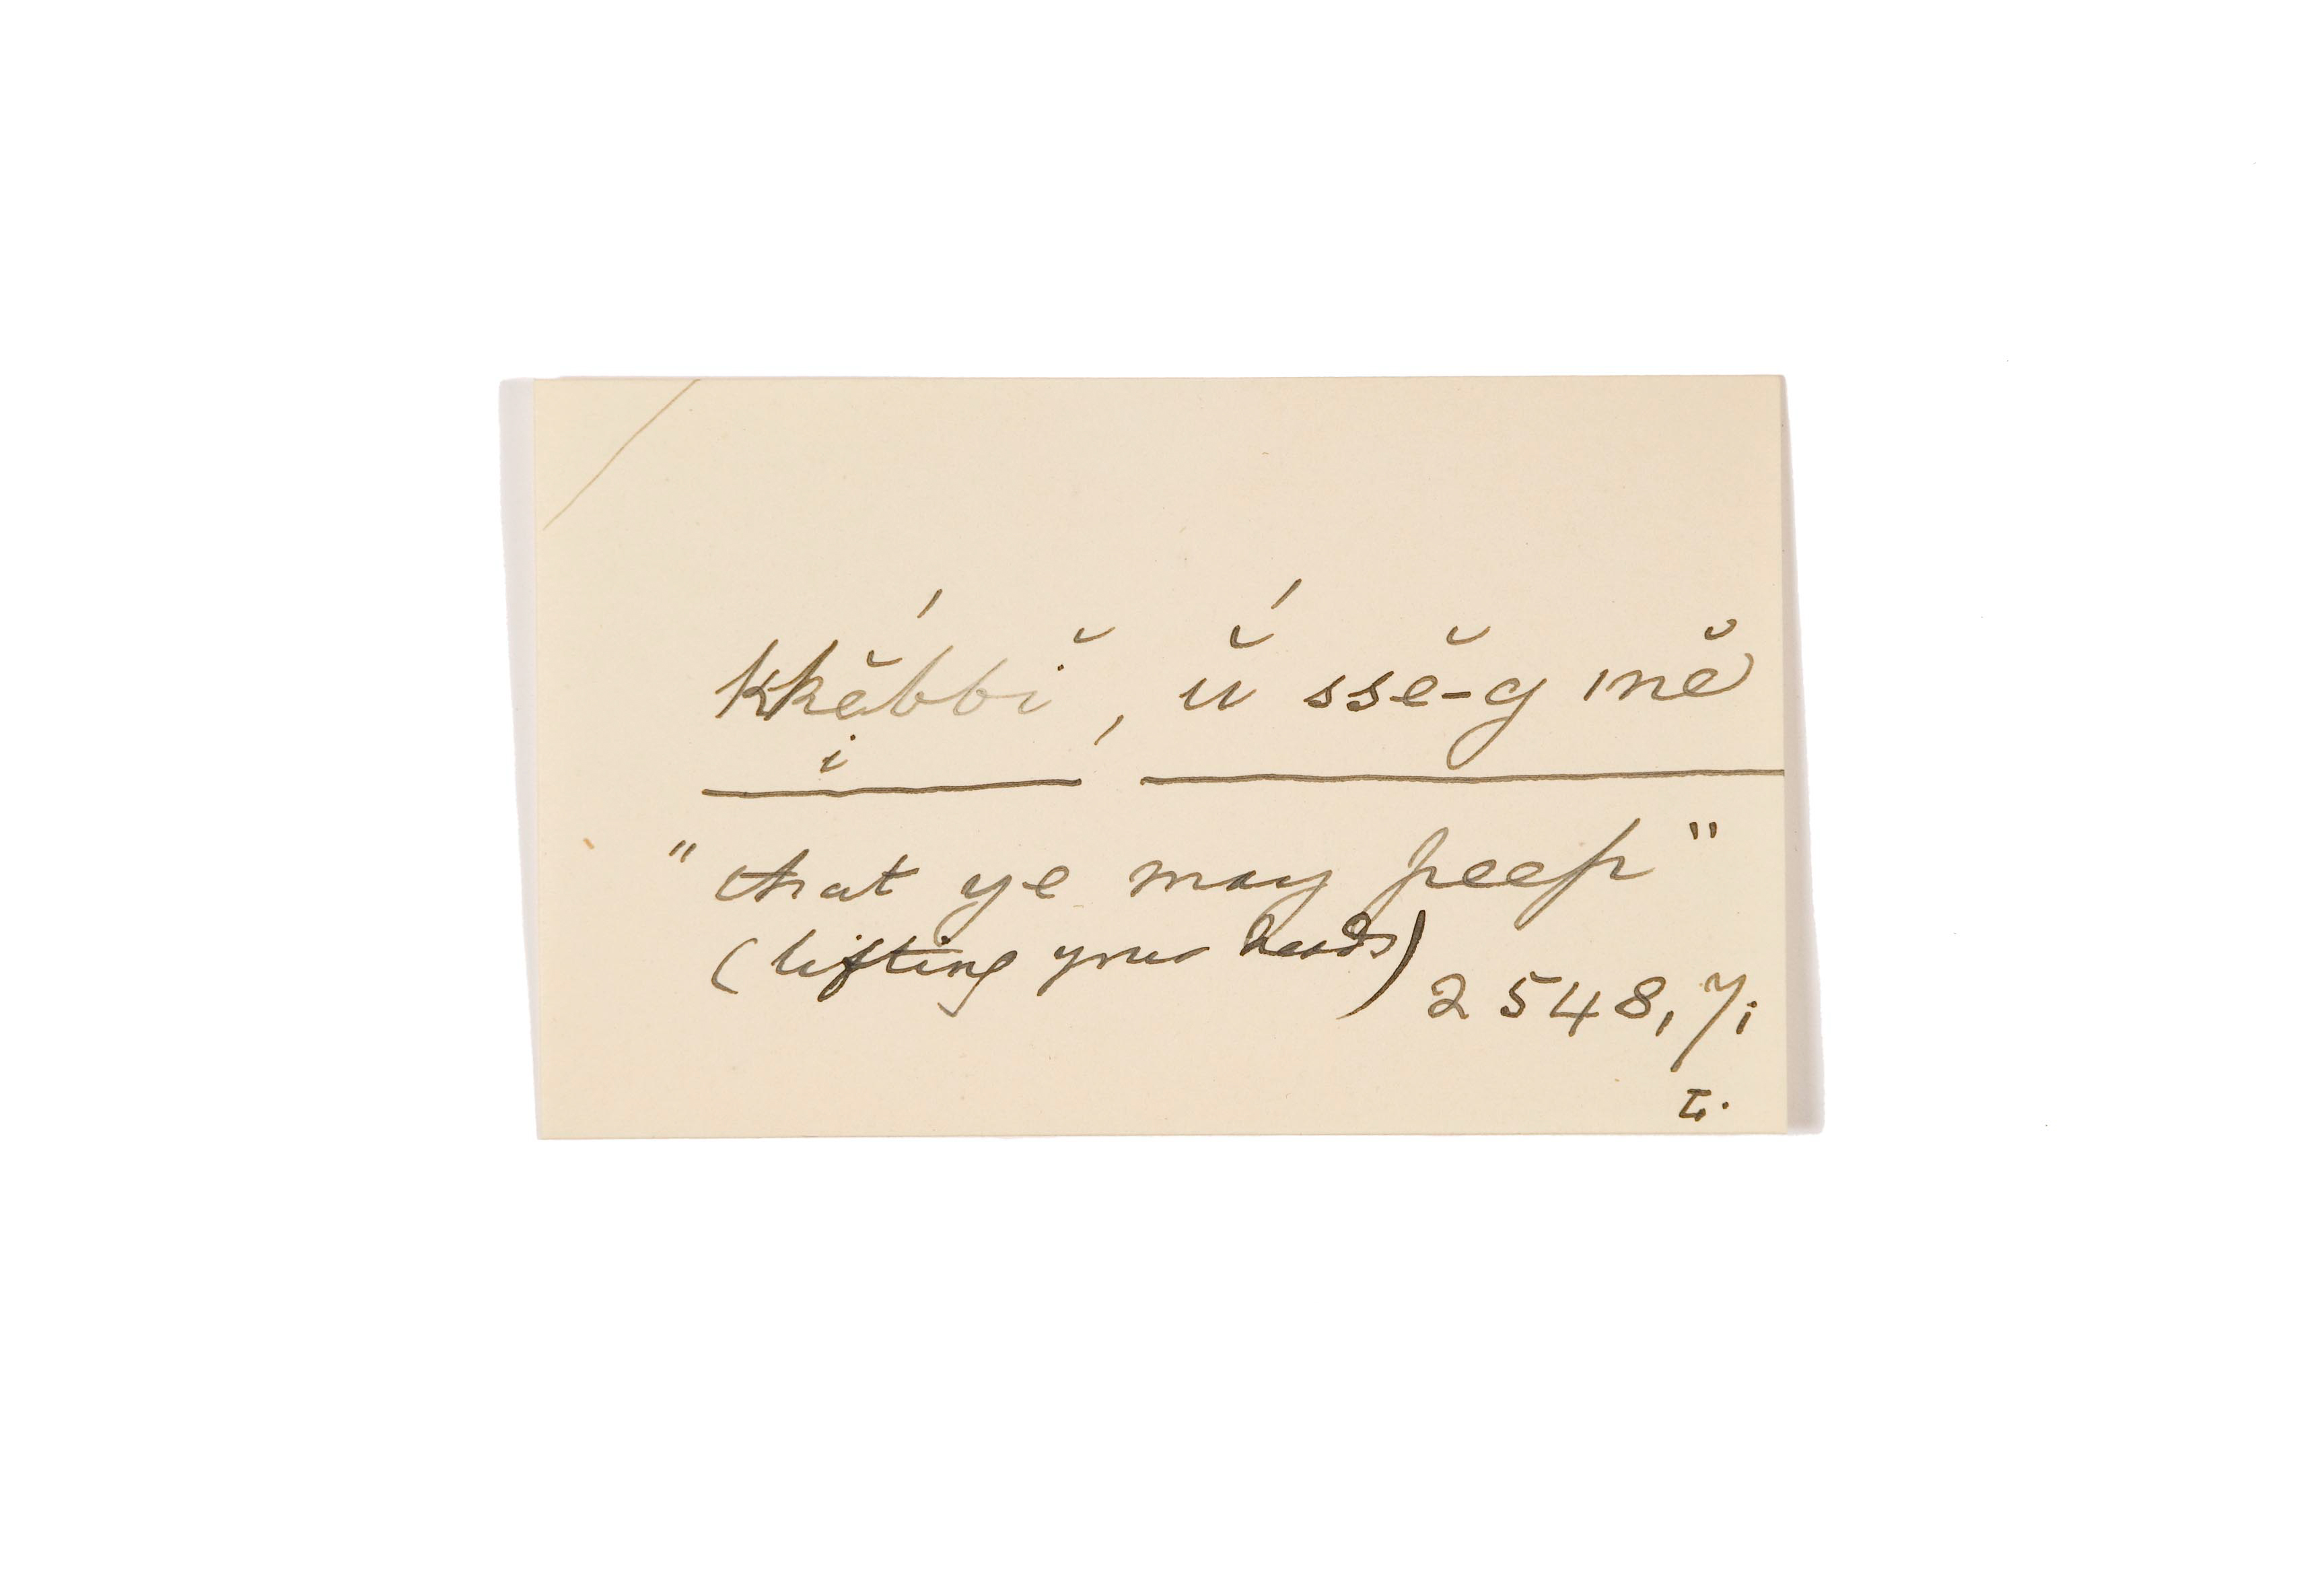 kkĕ́bbĭ, ŭ́ ssĕ-g ınĕ
i
"that ye may peep"
(lifting your heads)
2548, 7i